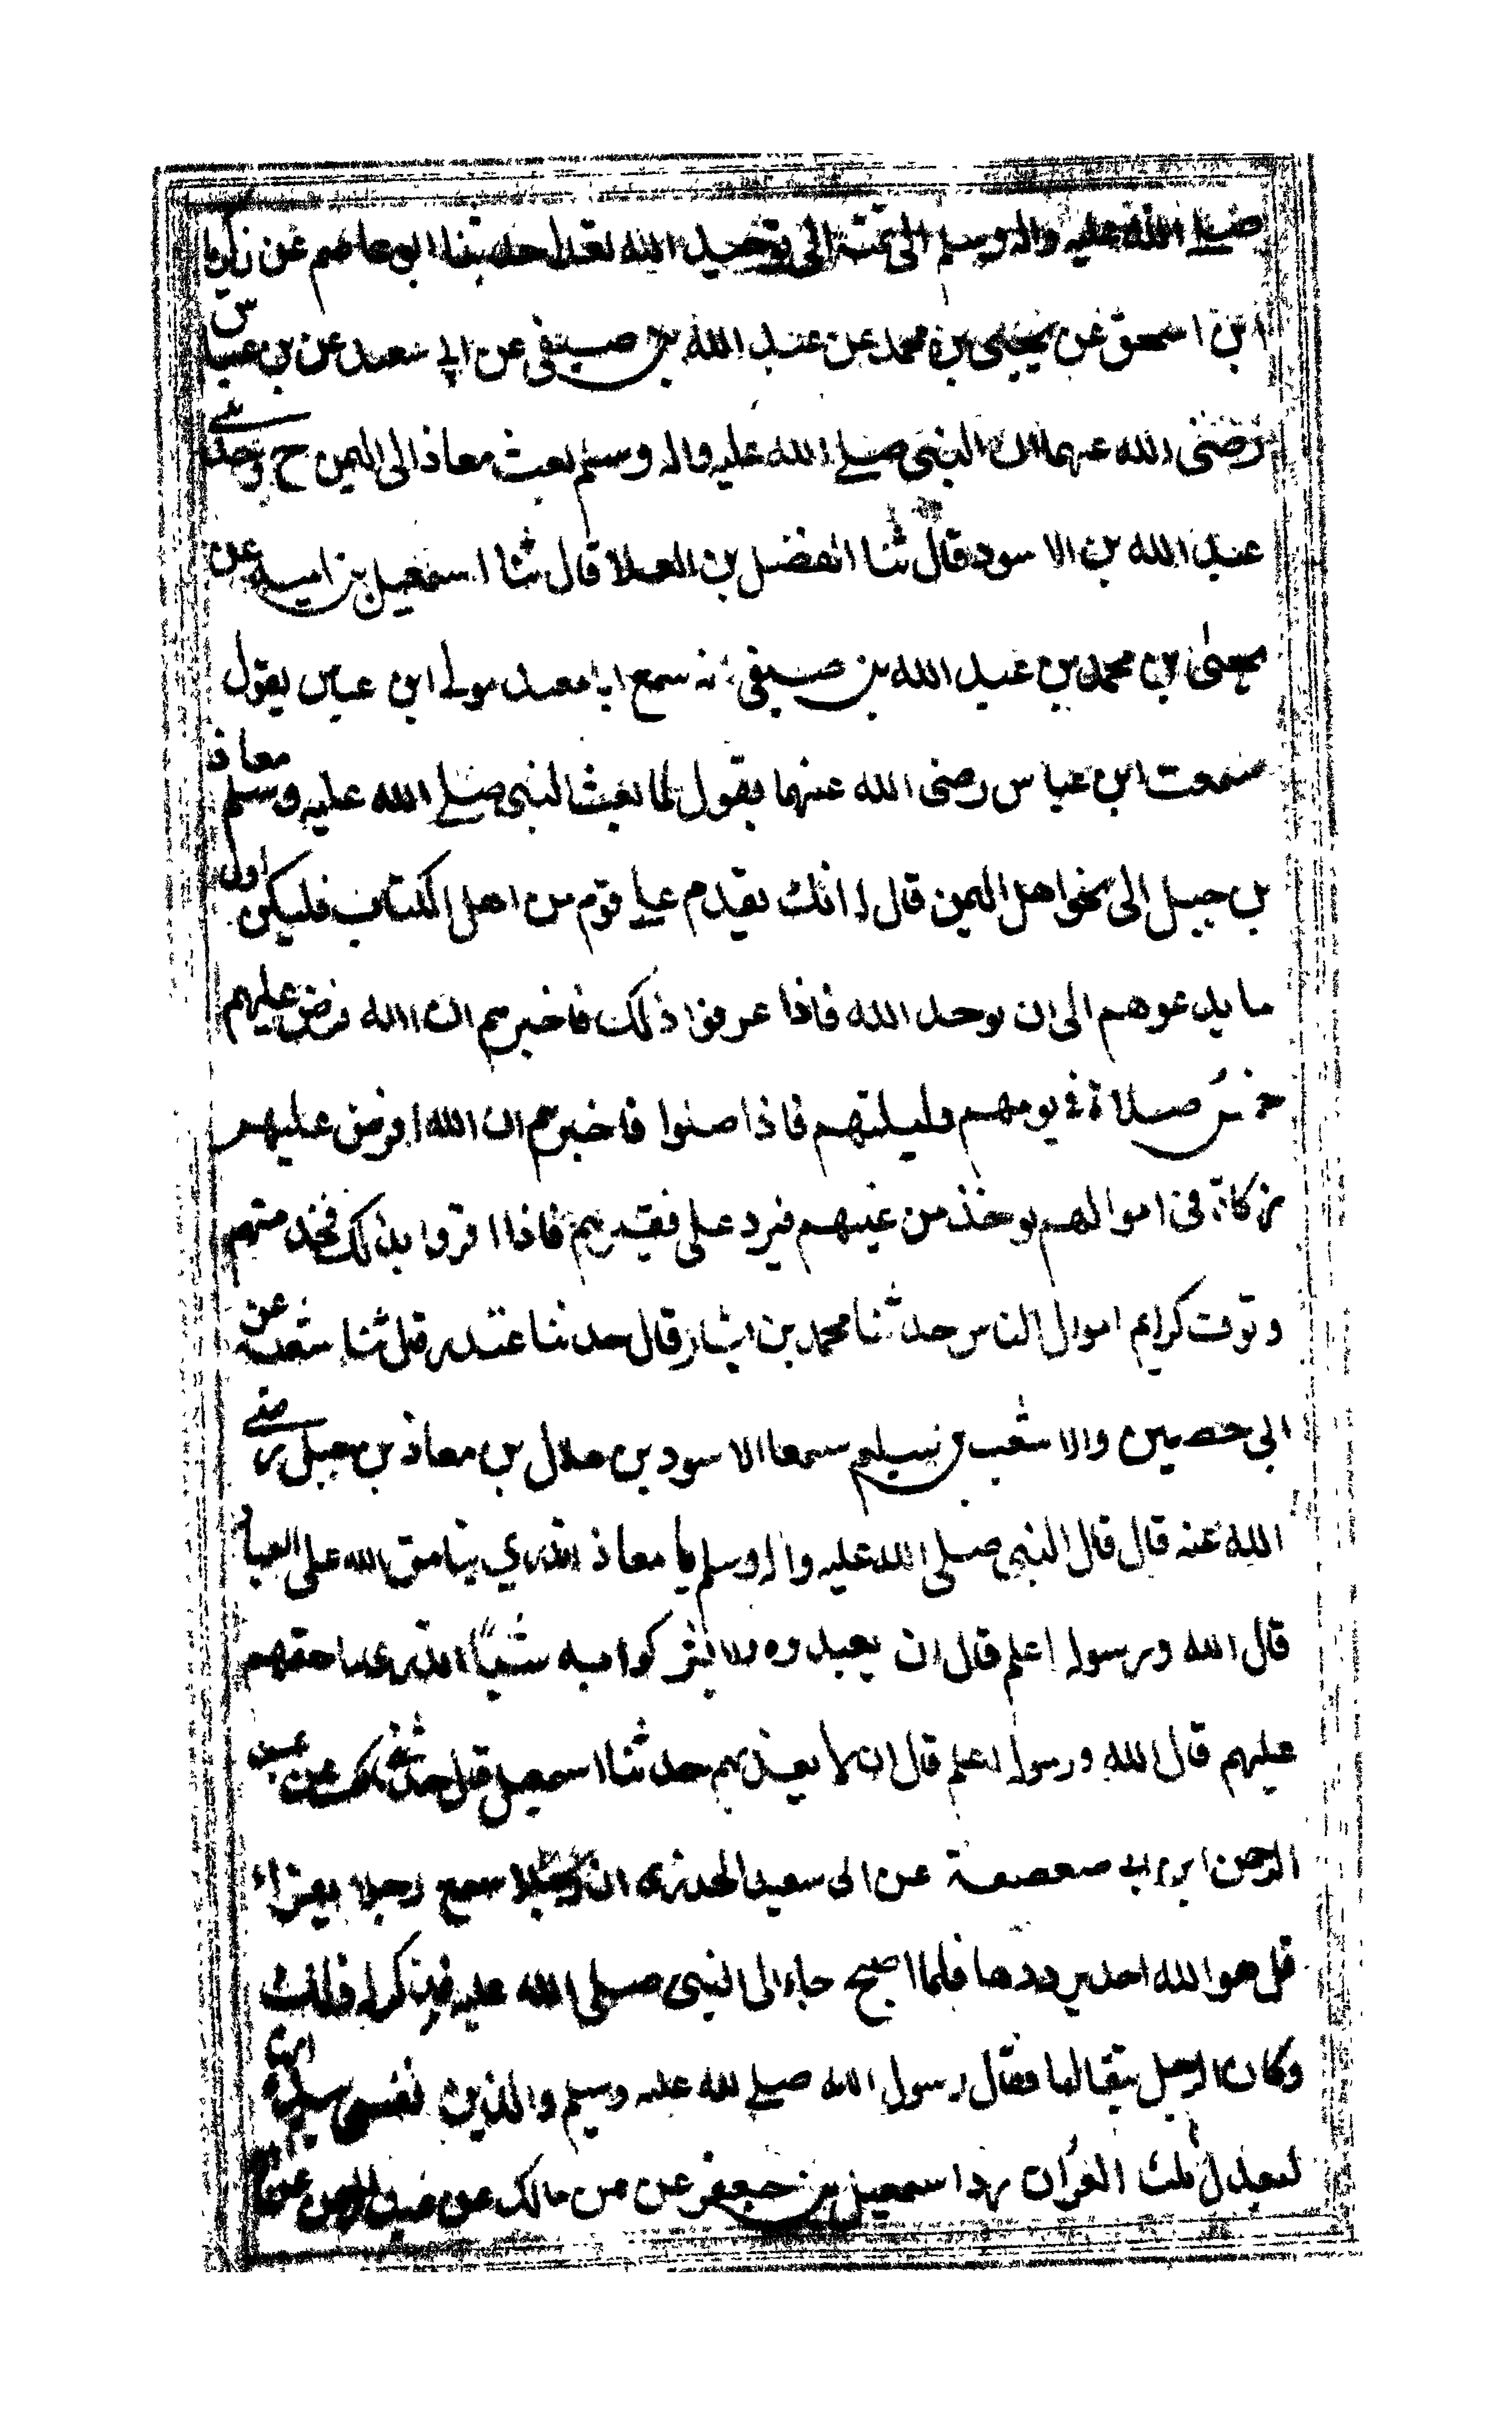 صلى الله عليه واله وسلم الى امته الى توحيد الله تعالى حدثنا ابو عاصم عن زكريا
ابن اسحق عن يحيى بن محمد عن عبد الله بن صيفى عن ابى سعيد عن بن عباس
رضى الله عنهما ان النبى صلى الله عليه واله وسلم بعث معاذا الى اليمن ح وحدثنى
عبد الله بن الاسود قال ثنا الفضل بن العلا قال ثنا اسمعيل بن اميه عن
يحيى بن محمد بن عبد الله بن صيفى انه سمع ابا معبد مولى ابن عباس يقول
سمعت ابن عباس رضى الله عنهما يقول لما بعث النبى صلى الله عليه وسلم معاذ
بن جبل الى نحو اهل اليمن قال له انك تقدم على قوم من اهل الكتاب فليكن اول
ما يدعوهم الى ان يوحد الله فاذا عرفوا ذلك فاخبرهم ان الله فرض عليهم
خمس صلاة فى يومهم وليلتهم فاذا صلوا فاخبرهم ان الله افرض عليهم
زكاة فى اموالهم يوخذ من غنيهم فيرد على فقيرهم فاذا اقروا بذلك فخذ منهم
وتوق كرايم اموال الناس حدثنا محمد بن بشار قال حدثنا غندر قال ثنا شعبة عن
ابى حصين والاشعب بن سليم سمعا الاسود بن هلال بن معاذ بن جبل رضى
الله عنه قال قال النبى صلى الله عليه واله وسلم يا معاذ اتدري ما حق الله على العباد
قال الله ورسوله اعلم قال ان يعبدوه ولا يشركوا به شيئًا اتدرى ما حقهم
عليهم قال الله ورسوله اعلم قال ان لا يعذبهم حدثنا اسمعيل قال حدثنى مالك عن عبد
الرحمن ابن ابى صعصعة عن ابى سعيد الخدرى ان رجلا سمع رجلا يقراء
قل هو الله احد يرددها فلما اصبح جاء الى النبى صلى الله عليه فذكر له ذلك
وكان الرجل يتقالها فقال رسول الله صلى الله عليه وسلم والذين نفسى بيده انها
لتعدل ثلث القران زاد اسمعيل بن جعفر عن مالك عن عبد الرحمن عن